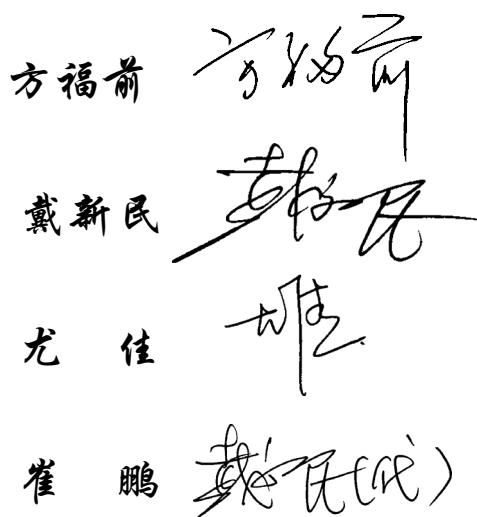 方福前 方福前
戴新民 戴新民
尤佳 尤佳
崔鹏 戴新民(代)